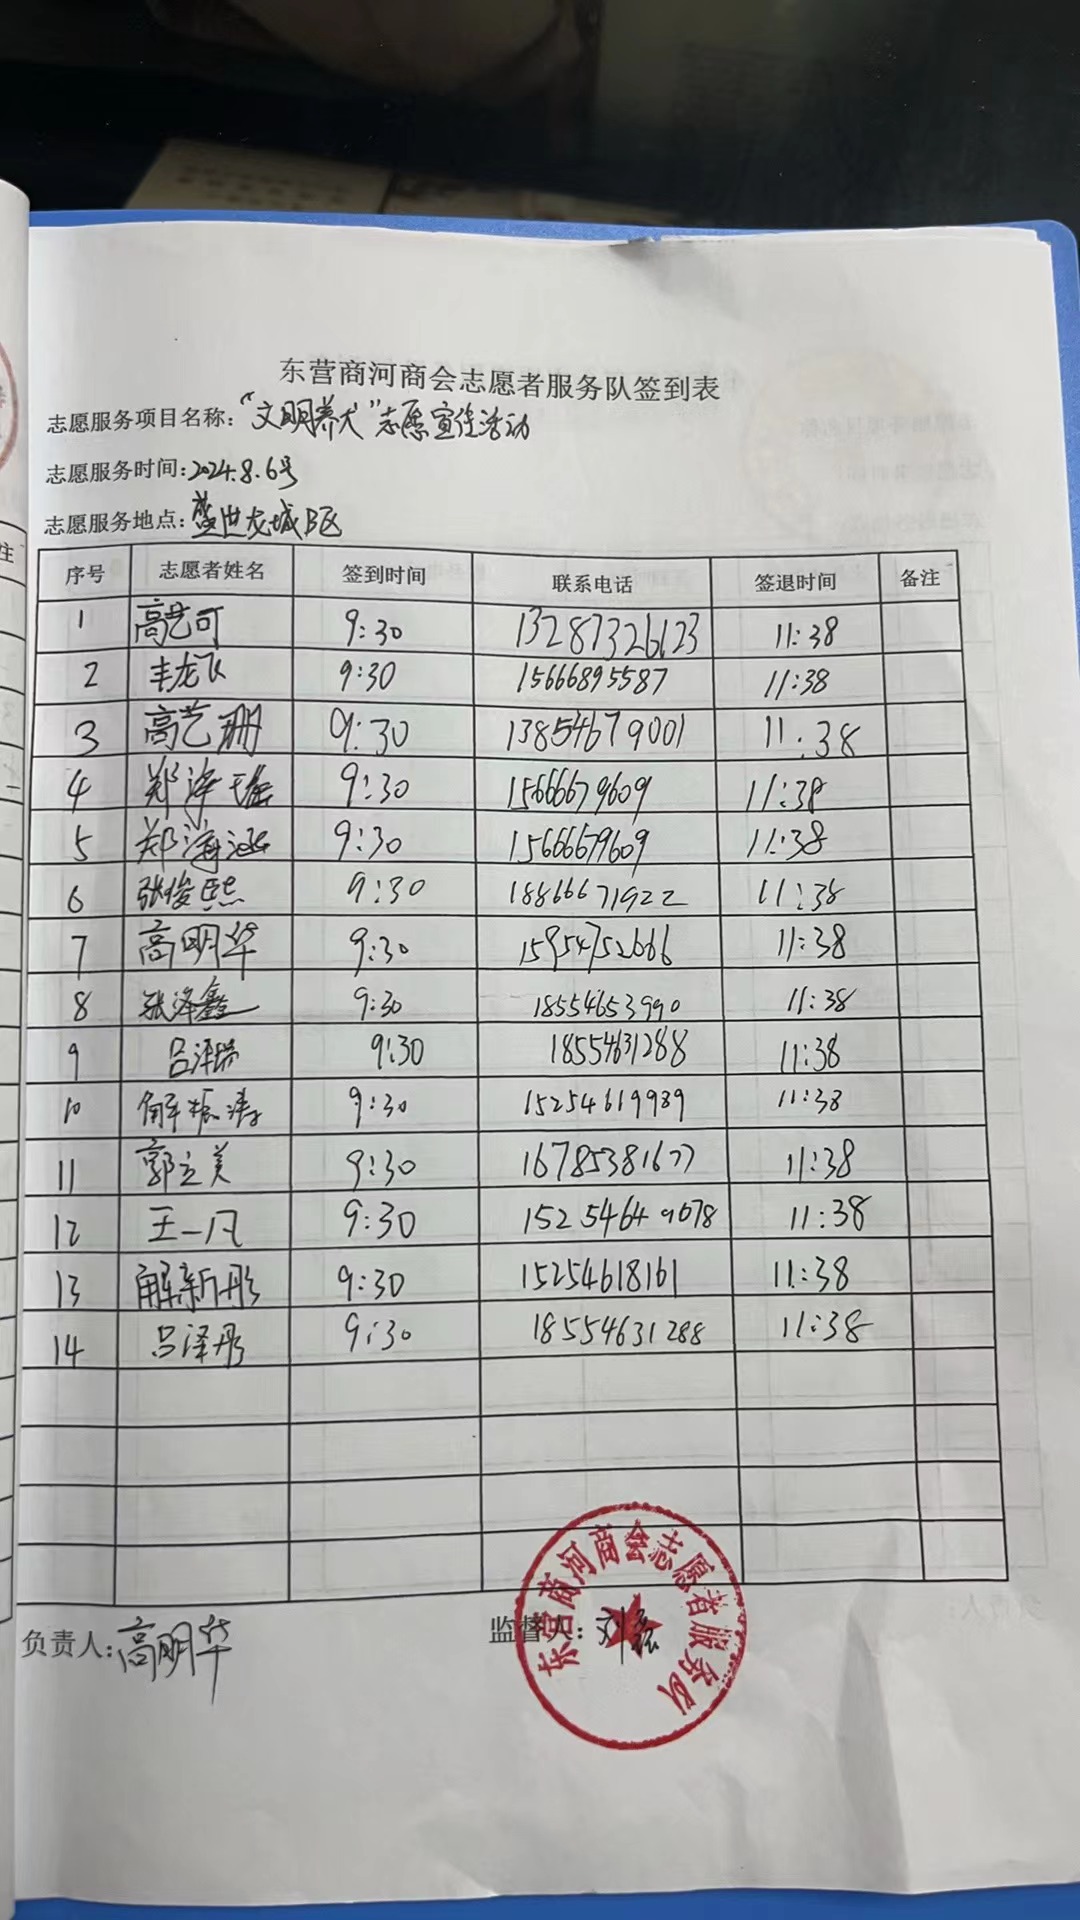 东营商河商会志愿者服务队签到表
志愿服务项目名称:“文明养犬”志愿宣传活动
志愿服务时间:2024.8.6号
志愿服务地点:盛世龙城B区
序号 志愿者姓名 签到时间 联系电话 签退时间 备注
1 高艺可 9:30 13287326123 11:38
2 丰龙飞 9:30 15666895587 11:38
3 高艺珊 9:30 13854679001 11:38
4 郑泽 9:30 15666679609 11:38
5 郑海涵 9:30 15666679609 11:38
6 张俊熙 9:30 18866671922 11:38
7 高明华 9:30 15954752666 11:38
8 张泽鑫 9:30 18554653990 11:38
9 吕泽瑞 9:30 18554631288 11:38
10 解振涛 9:30 15254619939 11:38
11 郭立美 9:30 16785381677 11:38
12 王一凡 9:30 15254649078 11:38
13 解新彤 9:30 15254618161 11:38
14 吕泽彤 9:30 18554631288 11:38
负责人:高明华 监督人:刘磊
东营商河商会志愿者服务队